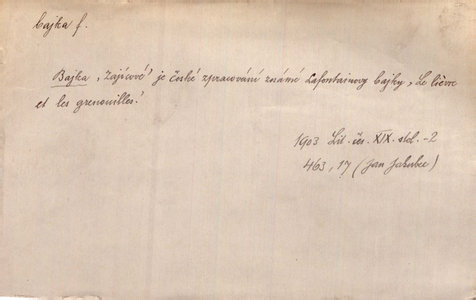 bajka f.
Bajka „Zajícové“ je české zpracování známé Lafontainovy bajky „Le lièvre
et les grenouilles.“
1903 Lit. čes. XIX. stol. -2
463, 17 (Jan Jakubec)